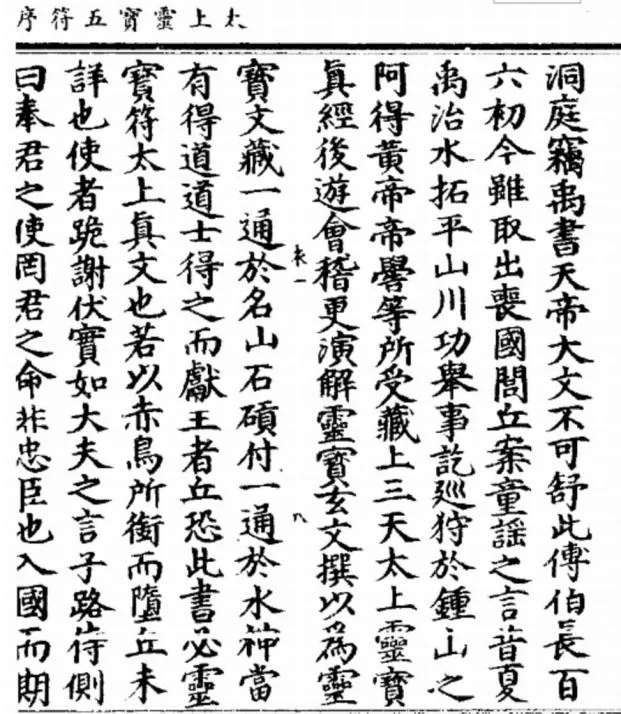 太上靈寶五符序
洞庭竊禹書天帝大文不可舒此傳伯長百
六初今雖取出喪國閭丘案童謠之言昔夏
禹治水拓平山川功舉事訖廵狩於鍾山之
阿得黃帝帝嚳等所受藏上三天太上靈寶
眞經後遊會稽更演解靈寶玄文撰以爲靈
一 八
寶文藏一通於名山石碩付一通於水神當
有得道道士得之而獻王者丘恐此書必靈
寶符太上眞文也若以赤鳥所銜而墮丘未
詳也使者跪謝伏實如大夫之言子路侍側
曰奉君之使罔君之命非忠臣也入國而期